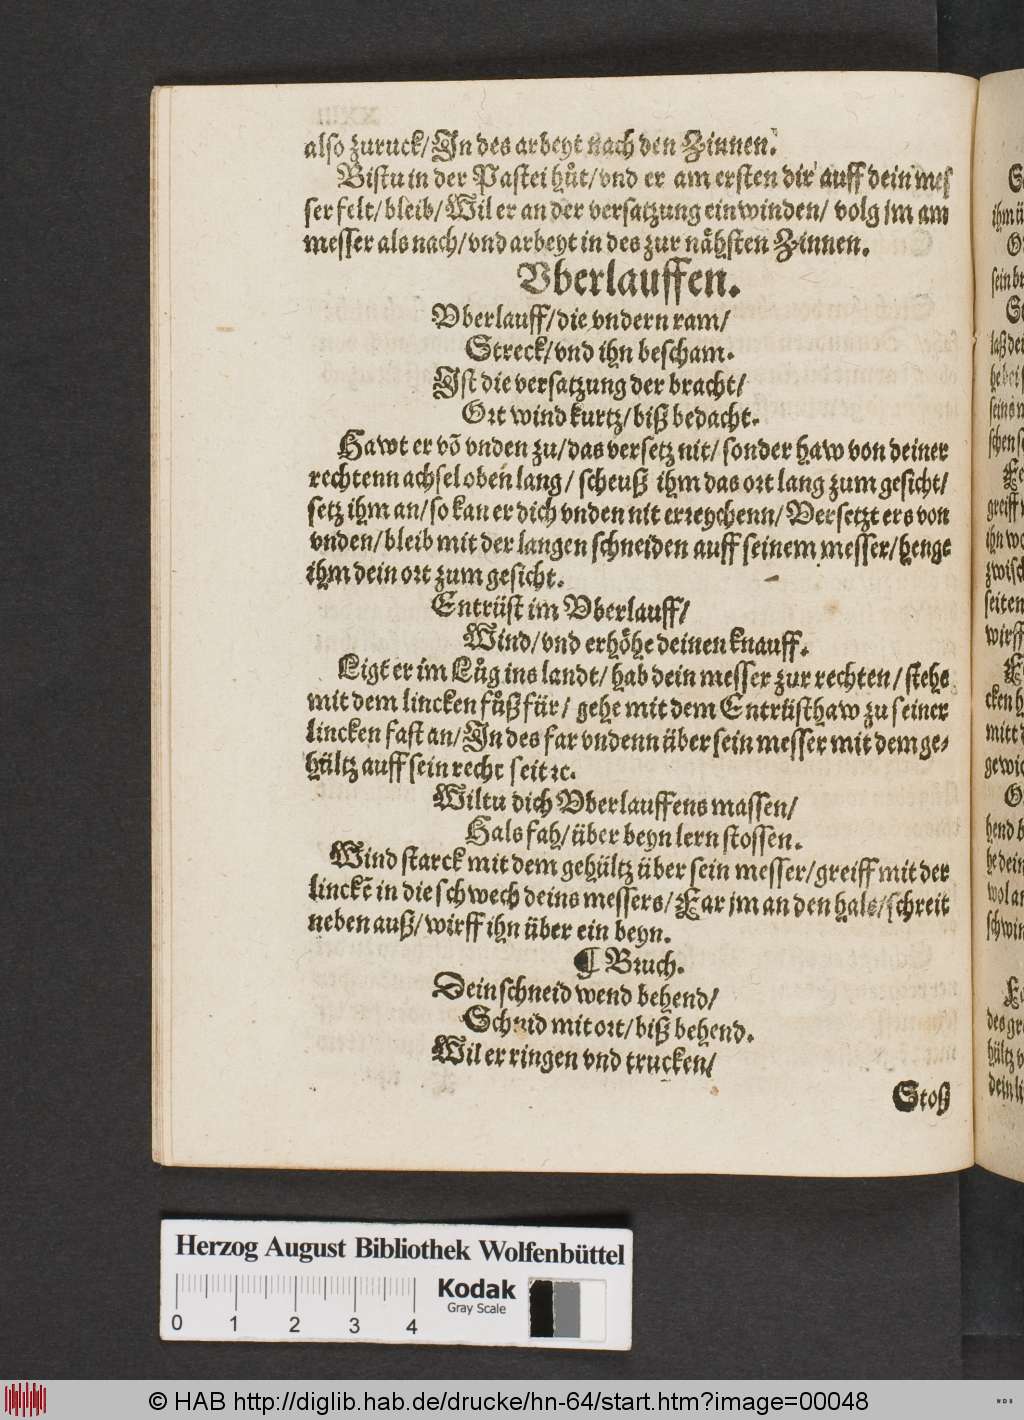 also zuruck/ In des arbeyt nach den Zinnen.
Bistu in der Pastei hůt/ vnd er am ersten dir auff dein mes
ser felt/ bleib/ Wil er an der versatzung einwinden/ volg jm am
messer als nach/ vnd arbeyt in des zur nåhsten Zinnen.
Vberlauffen.
Vberlauff/ die vndern ram/
Streck/ vnd ihn bescham.
Ist die versatzung der bracht/
Ort wind kurtz/ biß bedacht.
Hawt er võ vnden zu/ das versetz nit/ sonder haw von deiner
rechtenn achsel oben lang/ scheuß ihm das ort lang zum gesicht/
setz ihm an/ so kan er dich vnden nit erreychenn/ Versetzt ers von
vnden/ bleib mit der langen schneiden auff seinem messer/ henge
ihm dein ort zum gesicht.
Entrüst im Vberlauff/
Wind/ vnd erhöhe deinen knauff.
Ligt er im Lůg ins landt/ hab dein messer zur rechten/ stehe
mit dem lincken fůß für/ gehe mit dem Entrüsthaw zu seiner
lincken fast an/ In des far vndenn über sein messer mit dem ge-
hültz auff sein recht seit ꝛc.
Wiltu dich Vberlauffens massen/
Hals fah/ über beyn lern stossen.
Wind starck mit dem gehültz über sein messer/ greiff mit der
linckẽ in die schwech deins messers/ Far jm an den hals/ schreit
neben auß/ wirff ihn über ein beyn.
¶ Bruch.
Dein schneid wend behend/
Schnid mit ort/ biß behend.
Wil er ringen vnd trucken/
Stoß
Herzog August Bibliothek Wolfenbüttel
Kodak
Gray Scale
0 1 2 3 4
© HAB http://diglib.hab.de/drucke/hn-64/start.htm?image=00048